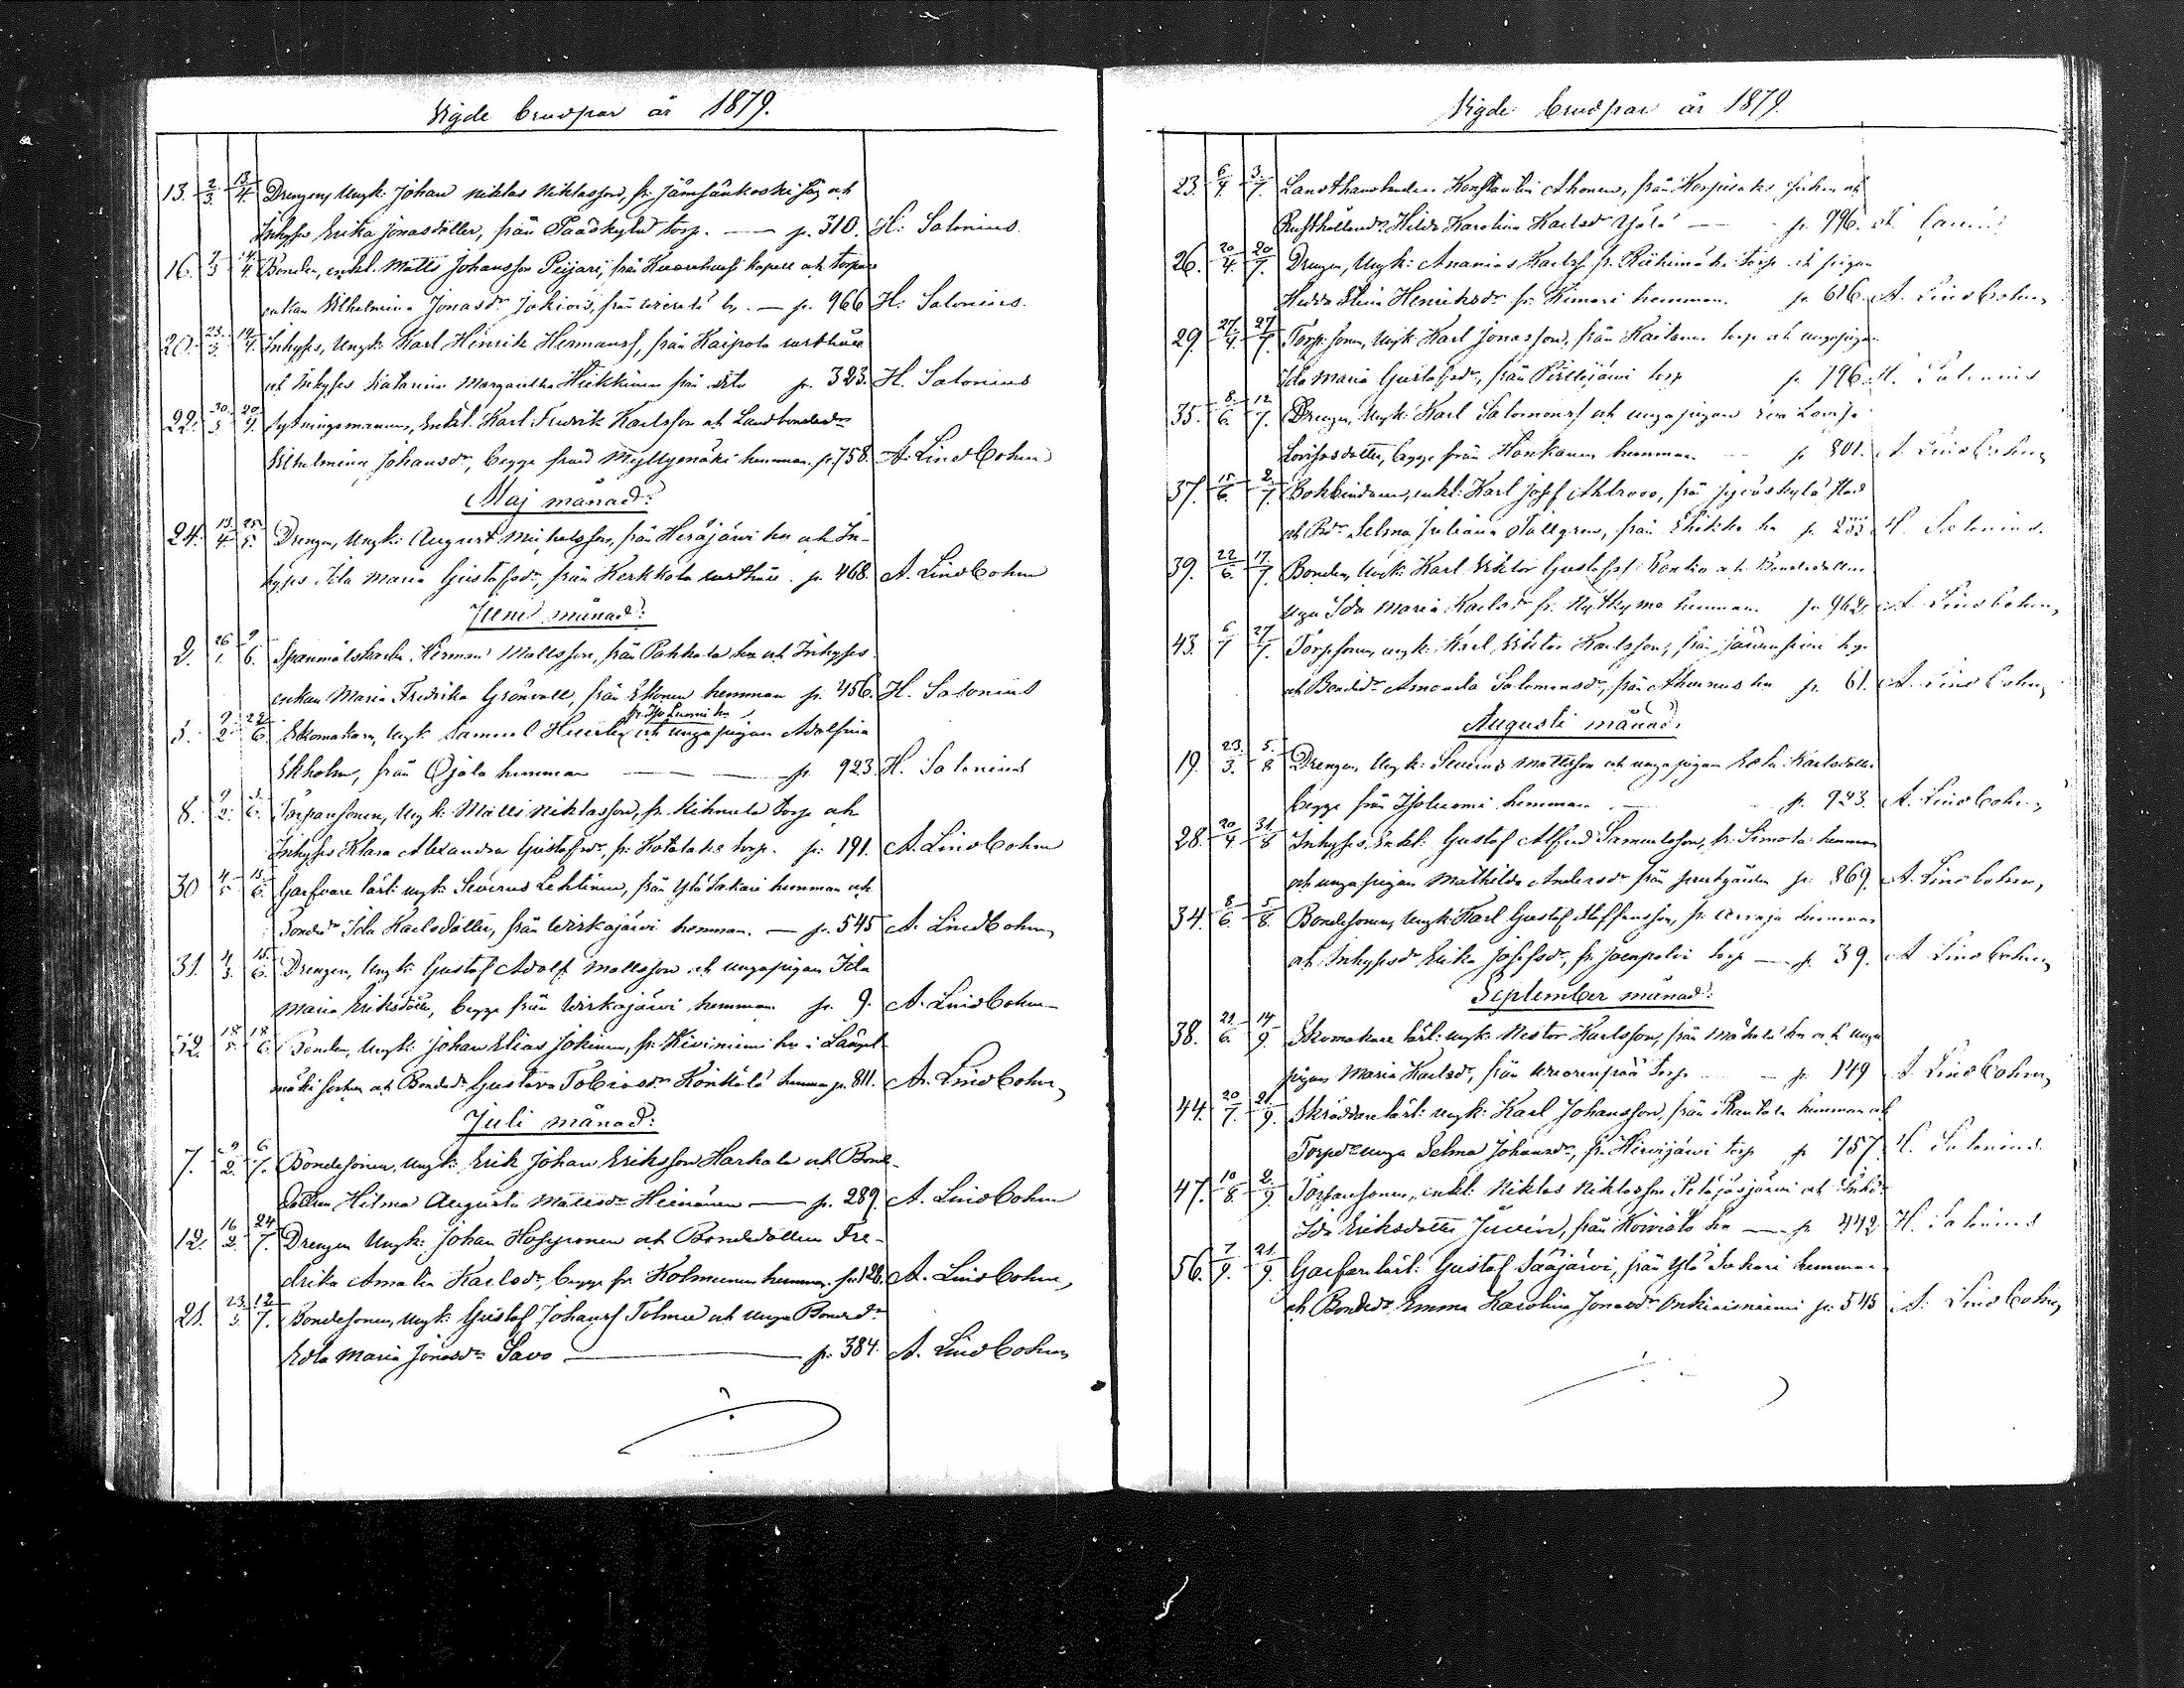 Vigde brudpar år 1879.
13. 2/3. 13/4. Drengen, Ungk: Johan Niklas Niklasson, fr. Jämsänkoski såg och
Inhyses Erika Jonasdotter, från Pääskylä torp. — p. 310. H. Salonius.
16. 2/3 14/4 Bonden, enkl. Matts Johansson Peijari, från kapell och torpare
enkan Vilhelmina Jonasdr Jokiois, från — p. 966 H. Salonius.
20. 23/3. 14/4. Inhyses, Ungk: Karl Henrik Hermansf, från Kaipola rusthåll
och Inhyses Katarina Margaretha Heikkinen från dito p. 323. H. Salonius
22. 30/3 20/4. Sytningsmannen, Enkl. Karl Fredrik Karlsson och Landbondedr
Vilhelmina Johansdr, begge från Myllymäki hemman. p. 758. A. Lindbohm
Maj månad:
24. 13/4. 25/5. Drengen, Ungk: August Michelsson, från Heräjärvi hn och In-
hyses Ida Maria Gustafsdr, från Kerkkola rusthåll. p. 468. A. Lindbohm
Juni månad:
2. 26/1. 9/6. Herman Mattsson, från Pakkala hn och Inhyses
enkan Maria Fredrika Grönvall, från Ekonen hemman p. 456. H. Salonius
fr. Iso Luomi hn
5. 9/2 29/6. Skomakaren, Ungk. Samuel och unga pigan Adolfina
Ekholm, från Ojala hemman — p. 923. H. Salonius
8. 9/2. 6. Torparsonen, Ungk: Matts Niklasson, fr. torp och
Inhyses Klara Alexandra Gustafsdr, fr. torp. p. 191. A. Lindbohm
30 4/5 15/6. Garfvare lärl: ungk: Severus Lehtinen, från Ylä Sakari hemman och
Bondedr Ida Karlsdotter, från Virkajärvi hemman. — p. 545 A. Lindbohm
31. 4/5. 15/6. Drengen, Ungk: Gustaf Adolf Mattsson och unga pigan Ida
Maria Eriksdotter, begge från Virkajärvi hemman p. 9. A. Lindbohm
32. 18/5. 18/6. Bonden, Ungk: Johan Elias Jokinen, fr. Kiviniemi hn i Längel-
mäki socken och Bondedr Gustava Tobiasdr Könkölä hemman p. 811. A. Lindbohm
Juli månad:
7. 9/2. 6/7. Bondesonen, Ungk: Erik Johan Eriksson Harkala och Bonde-
dottren Hilma Augusta Mattsdr Heinänen — p. 289. A. Lindbohm
12. 16/2. 24/7. Drengen Ungk: Johan Hosyponen och Bondedottren Fre-
drika Amalia Karlsdr, begge fr. Kolmeinen hemman. p. 128. A. Lindbohm
21. 23/3 12/7. Bondesonen, Ungk: Gustaf Johansf Tolmer och unga Bondedr
Edla Maria Jonasdr Savo — p. 384. A. Lindbohm
Vigde brudpar år 1879.
23. 6/4. 3/7. Landthandlaren Konstantin Ahonen, från socken och
Rusthållaredr Hilda Karolina Karlsdr Yjälä — p. 796.
26. 20/4. 20/7. Drengen, Ungk: Ananias Karlsf fr. Riihimäki torp och pigan
Hedda Stina Henriksdr fr. hemman. p. 616. A. Lindbohm
29. 27/4. 27/7. Torpsonen, Ungk: Karl Jonasson, från torp och unga pigan
Ida Maria Gustafsdr, från Pirttijärvi torp p. 796. H. Salonius
35. 8/6. 12/7. Drengen, Ungk: Karl Salomonsf och unga pigan Eva Lovisa
Lovisasdotter, begge från Hankanen hemman — p. 801. A. Lindbohm
37. 15/6. 2/7. Bokbindaren, enkl: Karl Josef Ahlroos, från Jyväskylä stad
och Bdr Selma Juliana Tallgren, från hn p. 233 H. Salonius.
39. 22/6. 17/7. Bonden, Ungk: Karl Viktor Gustafsf Rontio och Bondedottren
unga Ida Maria Karlsdr fr. Nytkymä hemman p. 962. A. Lindbohm
43. 6/7 27/7. Torpsonen, ungk: Karl Viktor Karlsson, från torp
och Bondedr Amanda Salomonsdr, från hn p. 61. A. Lindbohm
Augusti månad:
19. 23/3. 5/8 Drengen, Ungk: Severus Mattsson och unga pigan Edla Karlsdotter
begge från Isoluomi hemman — p. 923. A. Lindbohm
28. 20/4 31/8 Inhyses Enkl: Gustaf Alfred Samuelsson, fr. Simola hemman
och unga pigan Mathilda Andersdr från prestgården p. 869. A. Lindbohm
34. 8/6. 5/8. Bondesonen, Ungk: Karl Gustaf Staffansson, fr. hemman
och Inhysesdr Erika Josefsdr, fr. torp — p. 39. A. Lindbohm
September månad:
38. 21/6. 14/9. Skomakare lärl: ungk: Nestor Karlsson, från Mäkelä hn och unga
pigan Maria Karlsdr, från Vuorenpää torp — p. 149 A. Lindbohm
44. 20/7. 21/9. Skräddare lärl: ungk: Karl Johansson, från Rantala hemman och
Torpdr unga Selma Johansdr, fr. Hirvijärvi torp p. 757. H. Salonius
47. 10/8. 2/9. Torparsonen, enkl: Niklas Niklasson Petäjäjärvi och
Ida Eriksdotter Juvén, från Koivisto hn — p. 442 H. Salonius
56. 7/9. 21/9. Garfvarelärl: Gustaf Sääjärvi, från Ylä Sakari hemman
och Bondedr Emma Karolina Jonasdr Onkiaisniemi p. 545 A. Lindbohm